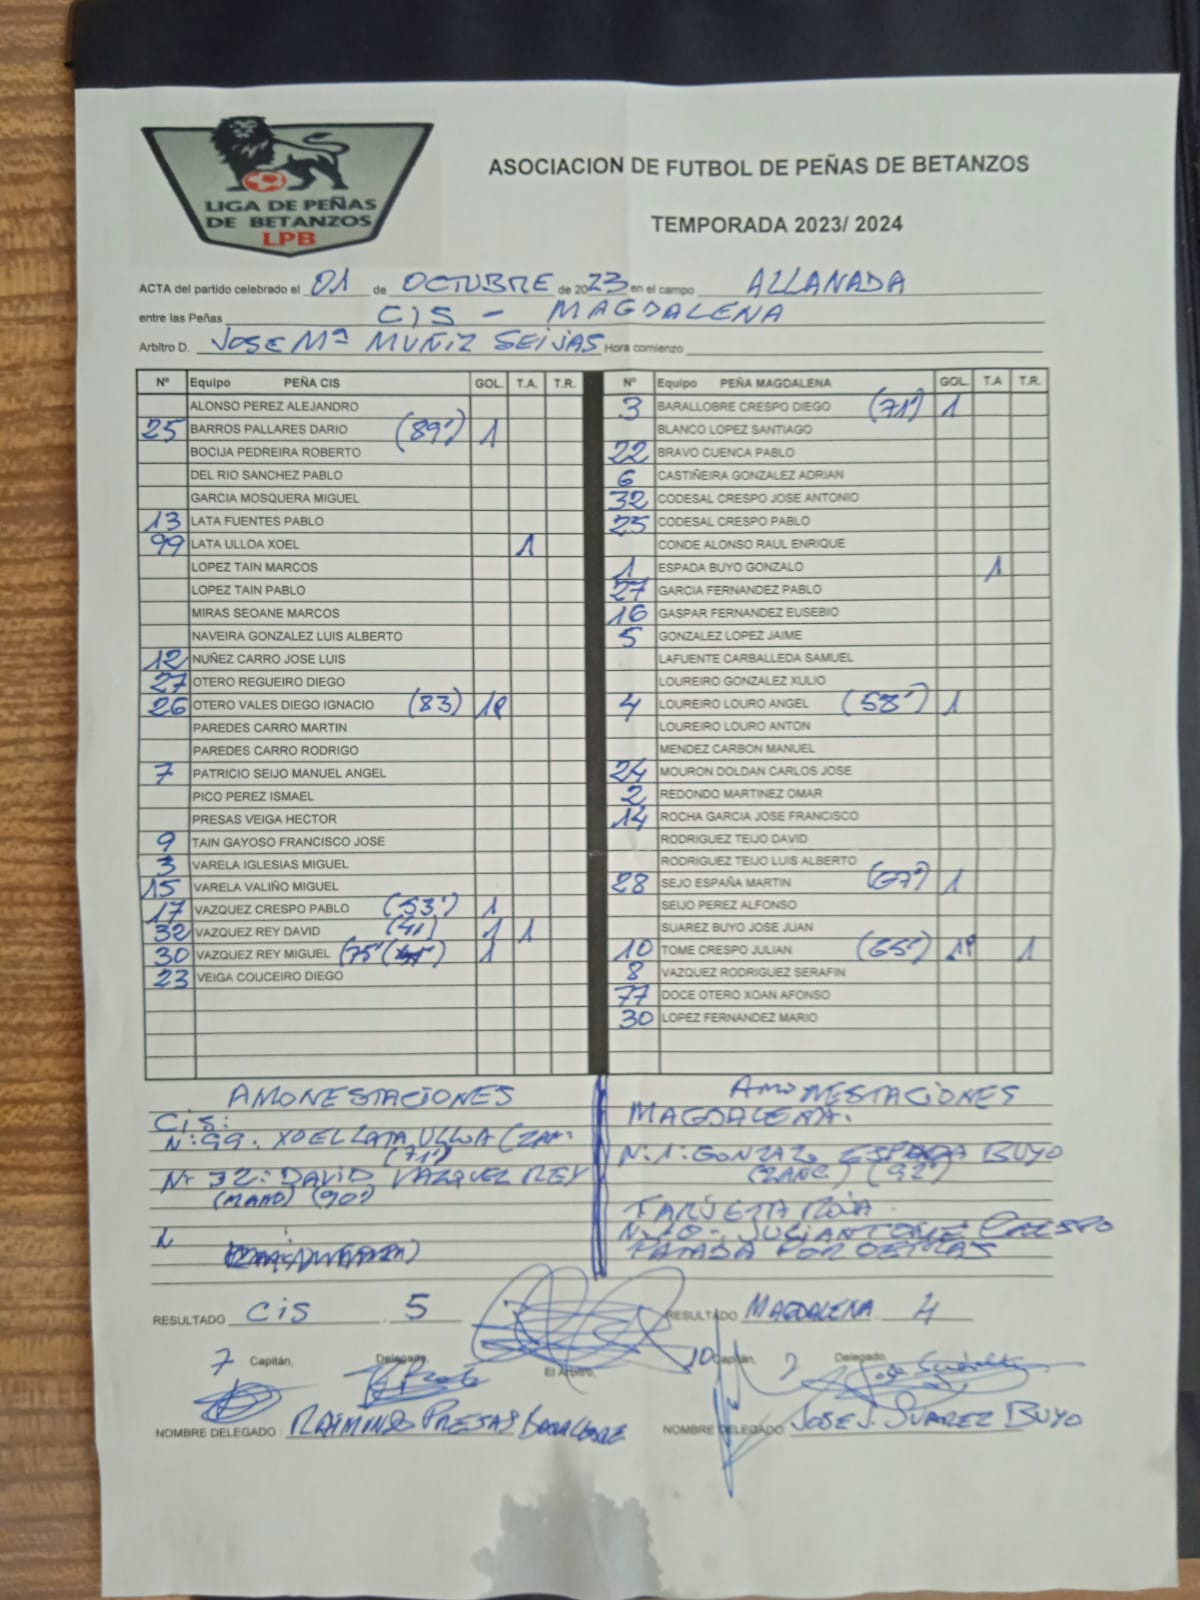 LIGA DE PEÑAS
DE BETANZOS
LPB
ASOCIACION DE FUTBOL DE PEÑAS DE BETANZOS
TEMPORADA 2023/ 2024
ACTA del partido celebrado el 01 de OCTUBRE de 2023 en el campo ALLANADA
entre las Peñas CIS - MAGDALENA
Arbitro D. JOSE Mª MUÑIZ SEIJAS Hora comienzo
Nº Equipo PEÑA CIS GOL. T.A. T.R.
ALONSO PEREZ ALEJANDRO
25 BARROS PALLARES DARIO (89') 1
BOCIJA PEDREIRA ROBERTO
DEL RIO SANCHEZ PABLO
GARCIA MOSQUERA MIGUEL
13 LATA FUENTES PABLO
99 LATA ULLOA XOEL 1
LOPEZ TAIN MARCOS
LOPEZ TAIN PABLO
MIRAS SEOANE MARCOS
NAVEIRA GONZALEZ LUIS ALBERTO
12 NUÑEZ CARRO JOSE LUIS
27 OTERO REGUEIRO DIEGO
26 OTERO VALES DIEGO IGNACIO (83) 1P
PAREDES CARRO MARTIN
PAREDES CARRO RODRIGO
7 PATRICIO SEIJO MANUEL ANGEL
PICO PEREZ ISMAEL
PRESAS VEIGA HECTOR
9 TAIN GAYOSO FRANCISCO JOSE
3 VARELA IGLESIAS MIGUEL
15 VARELA VALIÑO MIGUEL
17 VAZQUEZ CRESPO PABLO (53') 1
32 VAZQUEZ REY DAVID (41) 1 1
30 VAZQUEZ REY MIGUEL (75' 1
23 VEIGA COUCEIRO DIEGO
Nº Equipo PEÑA MAGDALENA GOL. T.A T.R.
3 BARALLOBRE CRESPO DIEGO (71') 1
BLANCO LOPEZ SANTIAGO
22 BRAVO CUENCA PABLO
6 CASTIÑEIRA GONZALEZ ADRIAN
32 CODESAL CRESPO JOSE ANTONIO
25 CODESAL CRESPO PABLO
CONDE ALONSO RAUL ENRIQUE
1 ESPADA BUYO GONZALO 1
27 GARCIA FERNANDEZ PABLO
16 GASPAR FERNANDEZ EUSEBIO
5 GONZALEZ LOPEZ JAIME
LAFUENTE CARBALLEDA SAMUEL
LOUREIRO GONZALEZ XULIO
4 LOUREIRO LOURO ANGEL (58') 1
LOUREIRO LOURO ANTON
MENDEZ CARBON MANUEL
24 MOURON DOLDAN CARLOS JOSE
2 REDONDO MARTINEZ OMAR
14 ROCHA GARCIA JOSE FRANCISCO
RODRIGUEZ TEIJO DAVID
RODRIGUEZ TEIJO LUIS ALBERTO
28 SEJO ESPAÑA MARTIN (67') 1
SEIJO PEREZ ALFONSO
SUAREZ BUYO JOSE JUAN
10 TOME CRESPO JULIAN 1P 1
8 VAZQUEZ RODRIGUEZ SERAFIN
77 DOCE OTERO XOAN AFONSO
30 LOPEZ FERNANDEZ MARIO
AMONESTACIONES
CIS:
Nº: 99. XOEL LATA ULLOA (ZAN.
(71')
Nº 32: DAVID VAZQUEZ REY
(MANO) (90')
AMONESTACIONES
MAGDALENA.
N.1: GONZALO ESPADA BUYO
(ZANC) (92')
TARJETA ROJA.
N.10- JULIAN TOME CRESPO
PATADA POR DETRAS
RESULTADO CIS 5
RESULTADO MAGDALENA 4
7 Capitán, Delegado, El Arbitro, 10 Capitán, Delegado,
NOMBRE DELEGADO : RAIMUNDO PRESAS
NOMBRE DELEGADO: JOSE J. SUAREZ BUYO